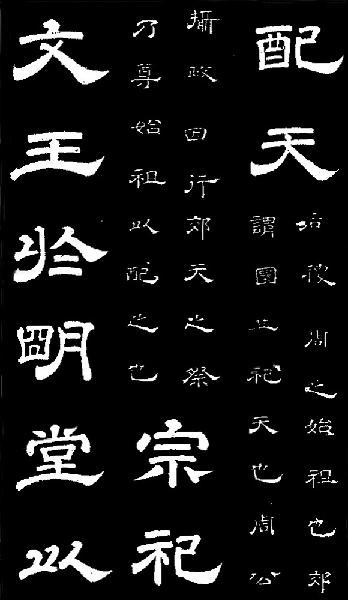 配天
后稷周之始祖也郊
謂圜丘祀天也周公
攝政因行郊天之祭
乃尊始祖以配之也
宗祀
文王於明堂以